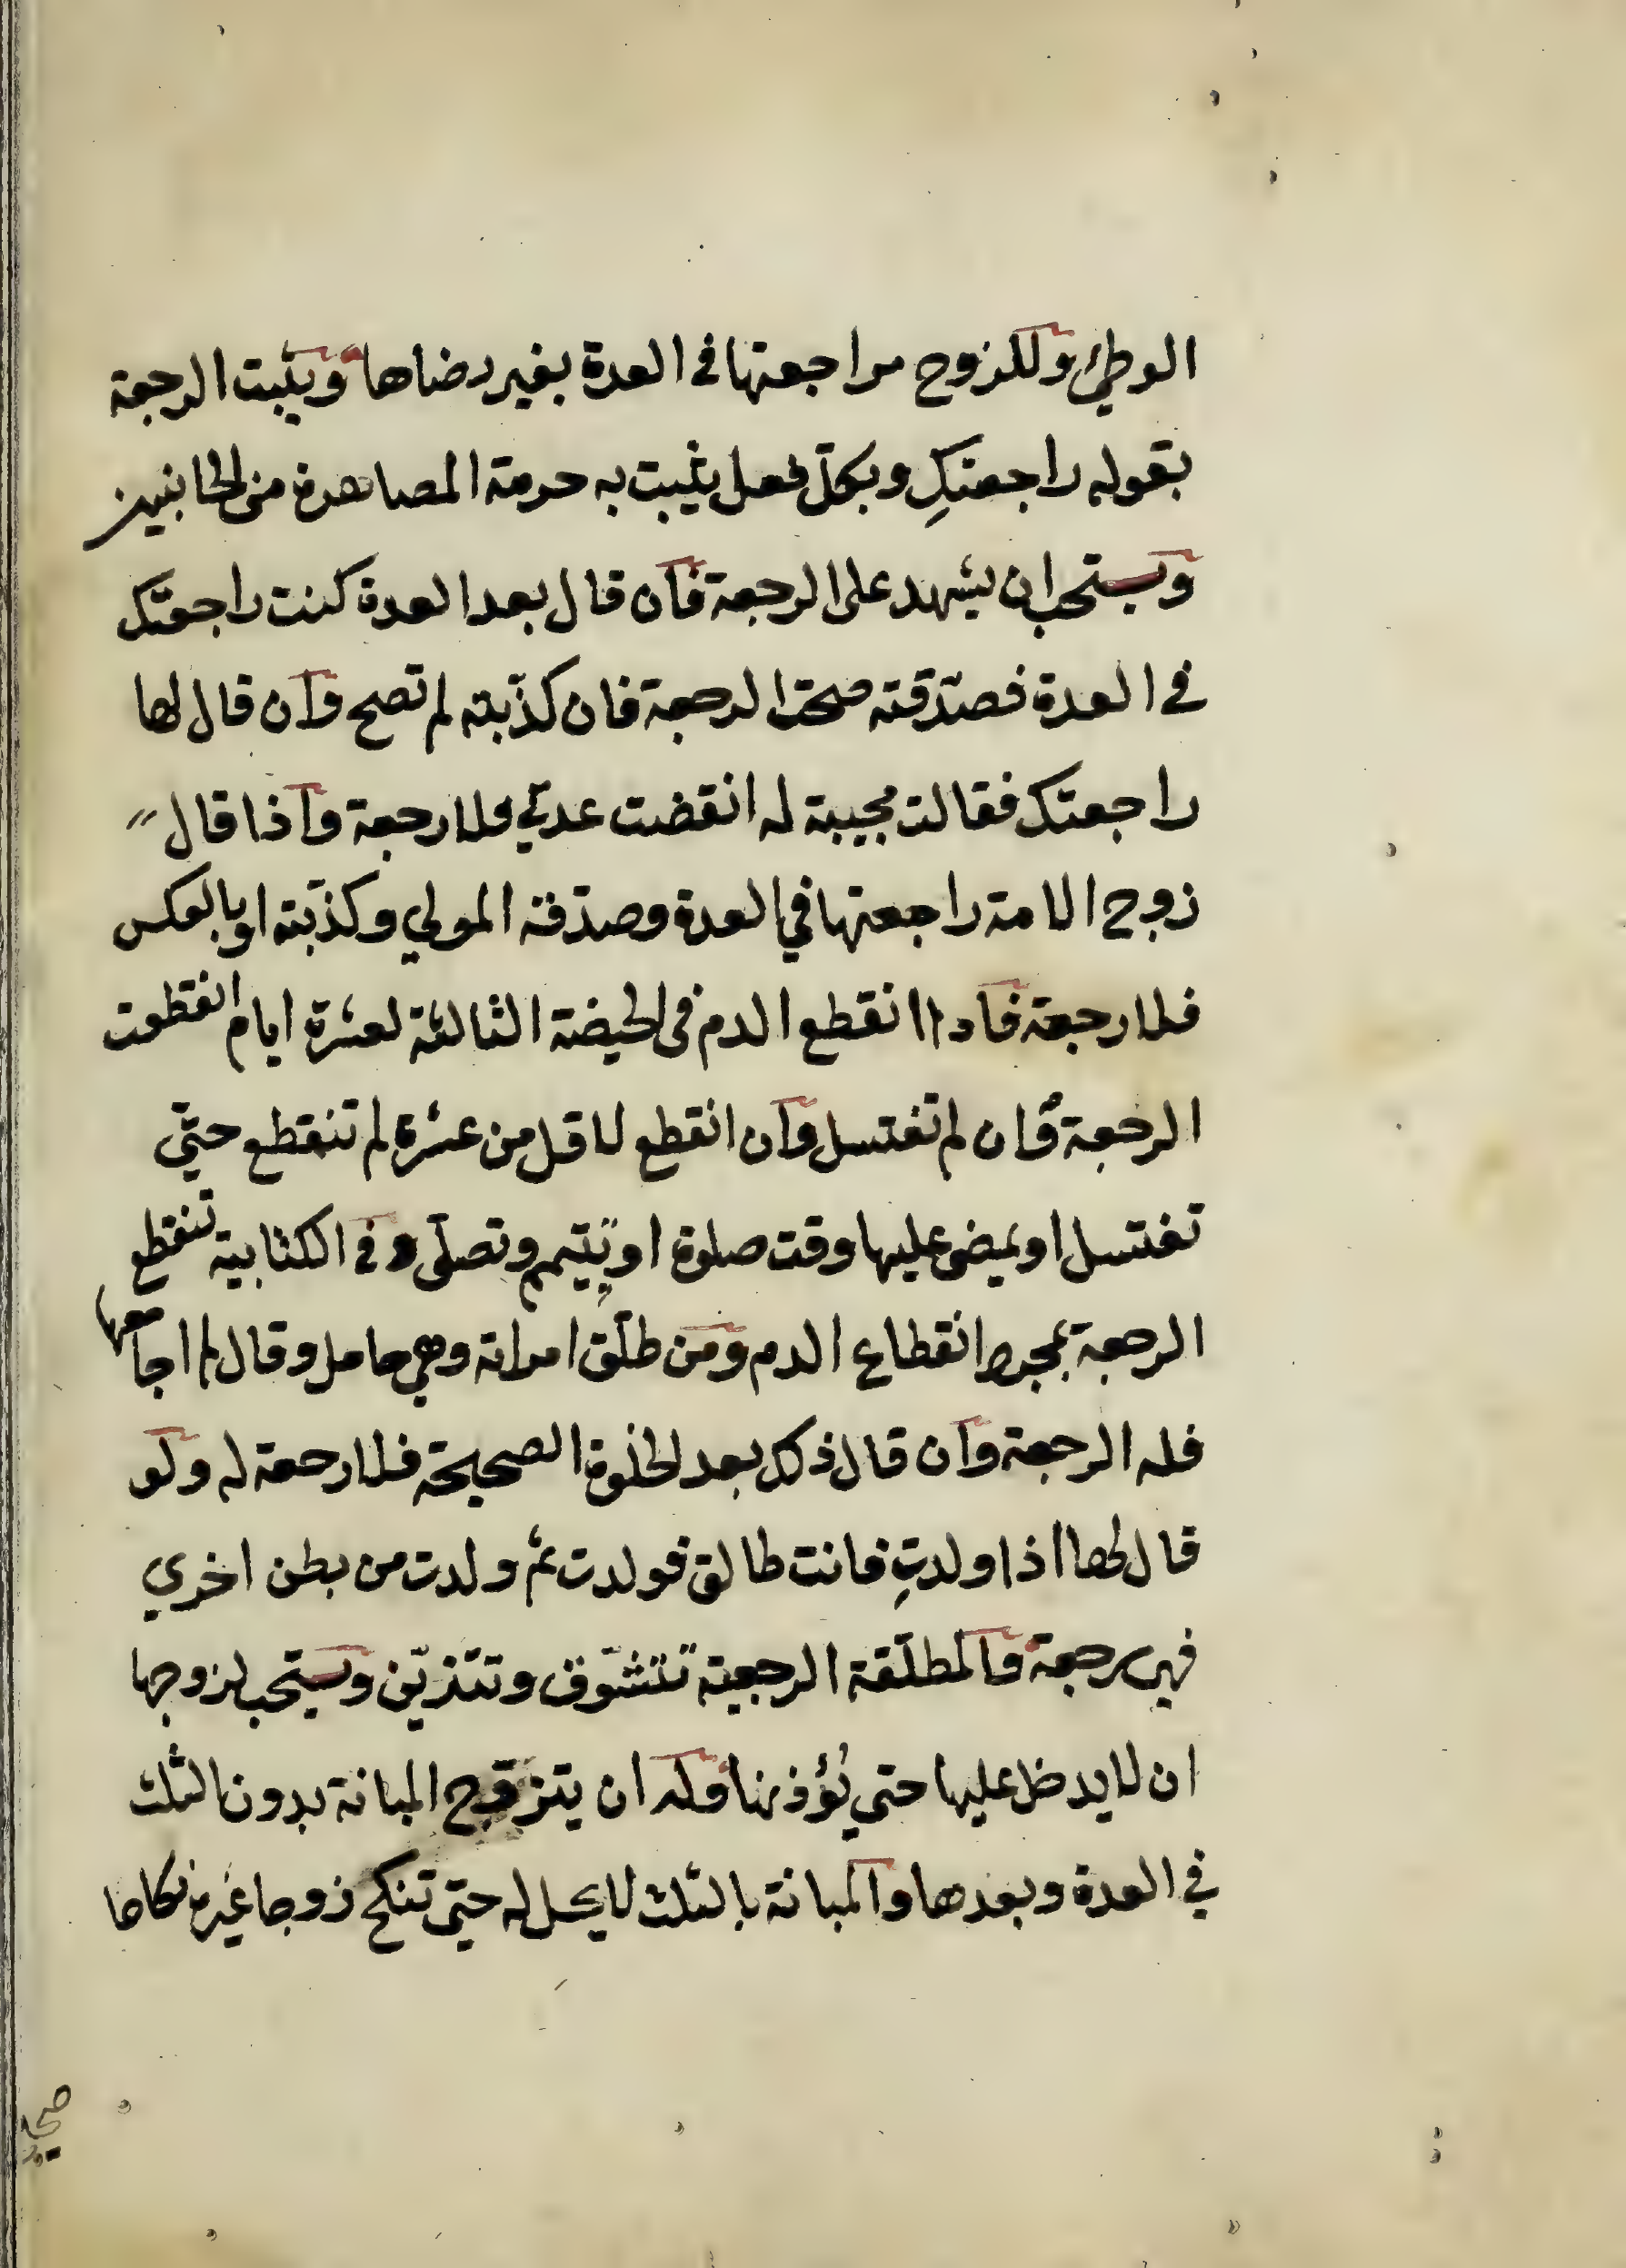 الوطئ وللزوج مراجعتها فى العدة بغير رضاها ويثبت الرجعة
بقوله راجعتكِ وبكلّ فعل يثبت به حرمة المصاهرة من الجانبين
ويستحب ان يشهد على الرجعة فان قال بعد العدة كنت راجعتك
في العدة فصدّقته صحت الرجعة فان كذّبته لم تصح وان قال لها
راجعتك فقالت مجيبة له انقضت عدتي فلا رجعة واذا قال
زوج الامة راجعتها في العدة وصدقه المولي وكذّبته او بالعكس
فلا رجعة فاذا انقطع الدم فى الحيضة الثالثة لعشرة ايام انقطعت
الرجعة وان لم تغتسل وان انقطع لاقل من عشرة لم تنقطع حتّي
تغتسل او يمضى عليها وقت صلوة او تيتيمم وتصلّى وفى الكتابية تنقطع
الرجعة بمجرد انقطاع الدم ومن طلّق امراته وهي حامل وقال لم اجامعها
فله الرجعة وان قال ذلك بعد الخلوة الصحيحة فلا رجعة له ولو
قال لها اذا ولدتِ فانت طالق فولدت ثم ولدت من بطن اخري
فهى رجعة والمطلّقة الرجعية تتشوّف وتتزيّن ويستحب لزوجها
ان لا يدخل عليها حتي يُؤذنها وله ان يتزوج المبانة بدون الثلث
في العدة وبعدها والمبانة بالثلث لا يحل له حتى تنكح زوجا غيره نكاحا